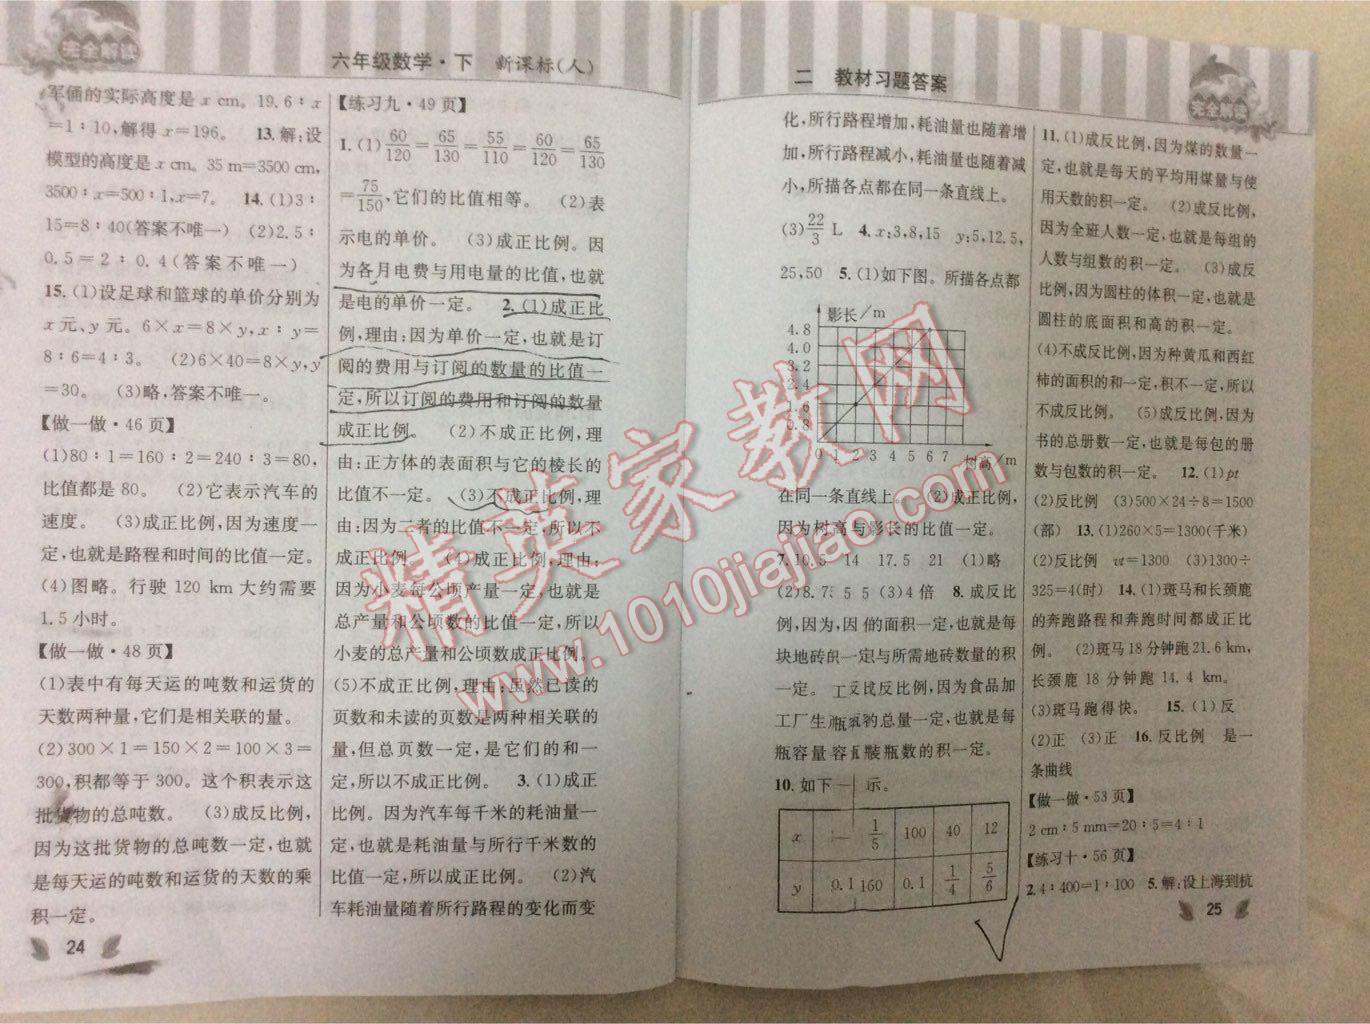 完全解读
六年级数学·下 新课标(人)
军俑的实际高度是 x cm。19.6∶x
=1∶10,解得 x=196。 13.解:设
模型的高度是 x cm。35 m=3500 cm,
3500∶x=500∶1,x=7。 14.(1)3∶
15=8∶40(答案不唯一) (2)2.5∶
0.5=2∶0.4(答案不唯一)
15.(1)设足球和篮球的单价分别为
x 元、y 元。6×x=8×y,x∶y=
8∶6=4∶3。 (2)6×40=8×y,y
=30。 (3)略,答案不唯一。
【做一做·46 页】
(1)80∶1=160∶2=240∶3=80,
比值都是 80。 (2)它表示汽车的
速度。 (3)成正比例,因为速度一
定,也就是路程和时间的比值一定。
(4)图略。行驶 120 km 大约需要
1.5 小时。
【做一做·48 页】
(1)表中有每天运的吨数和运货的
天数两种量,它们是相关联的量。
(2)300×1=150×2=100×3=
300,积都等于 300。这个积表示这
批货物的总吨数。 (3)成反比例,
因为这批货物的总吨数一定,也就
是每天运的吨数和运货的天数的乘
积一定。
24
【练习九·49 页】
1.(1) 60/120 = 65/130 = 55/110 = 60/120 = 65/130
= 75/150 ,它们的比值相等。 (2)表
示电的单价。 (3)成正比例。因
为各月电费与用电量的比值,也就
是电的单价一定。 2.(1)成正比
例,理由:因为单价一定,也就是订
阅的费用与订阅的数量的比值一
定,所以订阅的费用和订阅的数量
成正比例。 (2)不成正比例,理
由:正方体的表面积与它的棱长的
比值不一定。 (3)不成正比例,理
由:因为二者的比值不一定,所以不
成正比例。 (4)成正比例,理由:
因为小麦每公顷产量一定,也就是
总产量和公顷数的比值一定,所以
小麦的总产量和公顷数成正比例。
(5)不成正比例,理由:虽然已读的
页数和未读的页数是两种相关联的
量,但总页数一定,是它们的和一
定,所以不成正比例。 3.(1)成正
比例。因为汽车每千米的耗油量一
定,也就是耗油量与所行千米数的
比值一定,所以成正比例。 (2)汽
车耗油量随着所行路程的变化而变
二 教材习题答案
完全解读
化,所行路程增加,耗油量也随着增
加,所行路程减小,耗油量也随着减
小,所描各点都在同一条直线上。
(3) 22/3 L 4.x:3,8,15 y:5,12.5,
25,50 5.(1)如下图。所描各点都
影长/m
4.8
4.0
3.2
2.4
1.6
0.8
0 1 2 3 4 5 6 7 树高/m
在同一条直线上。 (2)成正比例,
因为树高与影长的比值一定。
7.10.5 14 17.5 21 (1)略
(2)8.75 5 (3)4 倍 8.成反比
例,因为 的面积一定,也就是每
块地砖的 与所需地砖数量的积
一定。 成反比例,因为食品加
工厂生 的总量一定,也就是每
瓶容量 装瓶数的积一定。
10.如下 示。
x 1/5 100 40 12
y 0.1 160 0.1 1/4 5/6
11.(1)成反比例,因为煤的数量一
定,也就是每天的平均用煤量与使
用天数的积一定。 (2)成反比例,
因为全班人数一定,也就是每组的
人数与组数的积一定。 (3)成反
比例,因为圆柱的体积一定,也就是
圆柱的底面积和高的积一定。
(4)不成反比例,因为种黄瓜和西红
柿的面积的和一定,积不一定,所以
不成反比例。 (5)成反比例,因为
书的总册数一定,也就是每包的册
数与包数的积一定。 12.(1)pt
(2)反比例 (3)500×24÷8=1500
(部) 13.(1)260×5=1300(千米)
(2)反比例 vt=1300 (3)1300÷
325=4(时) 14.(1)斑马和长颈鹿
的奔跑路程和奔跑时间都成正比
例。 (2)斑马 18 分钟跑 21.6 km,
长颈鹿 18 分钟跑 14.4 km。
(3)斑马跑得快。 15.(1)反
(2)正 (3)正 16.反比例 是一
条曲线
【做一做·53 页】
2 cm∶5 mm=20∶5=4∶1
【练习十·56 页】
2.4∶400=1∶100 5.解:设上海到杭
25
精英家教网
www.1010jiajiao.com